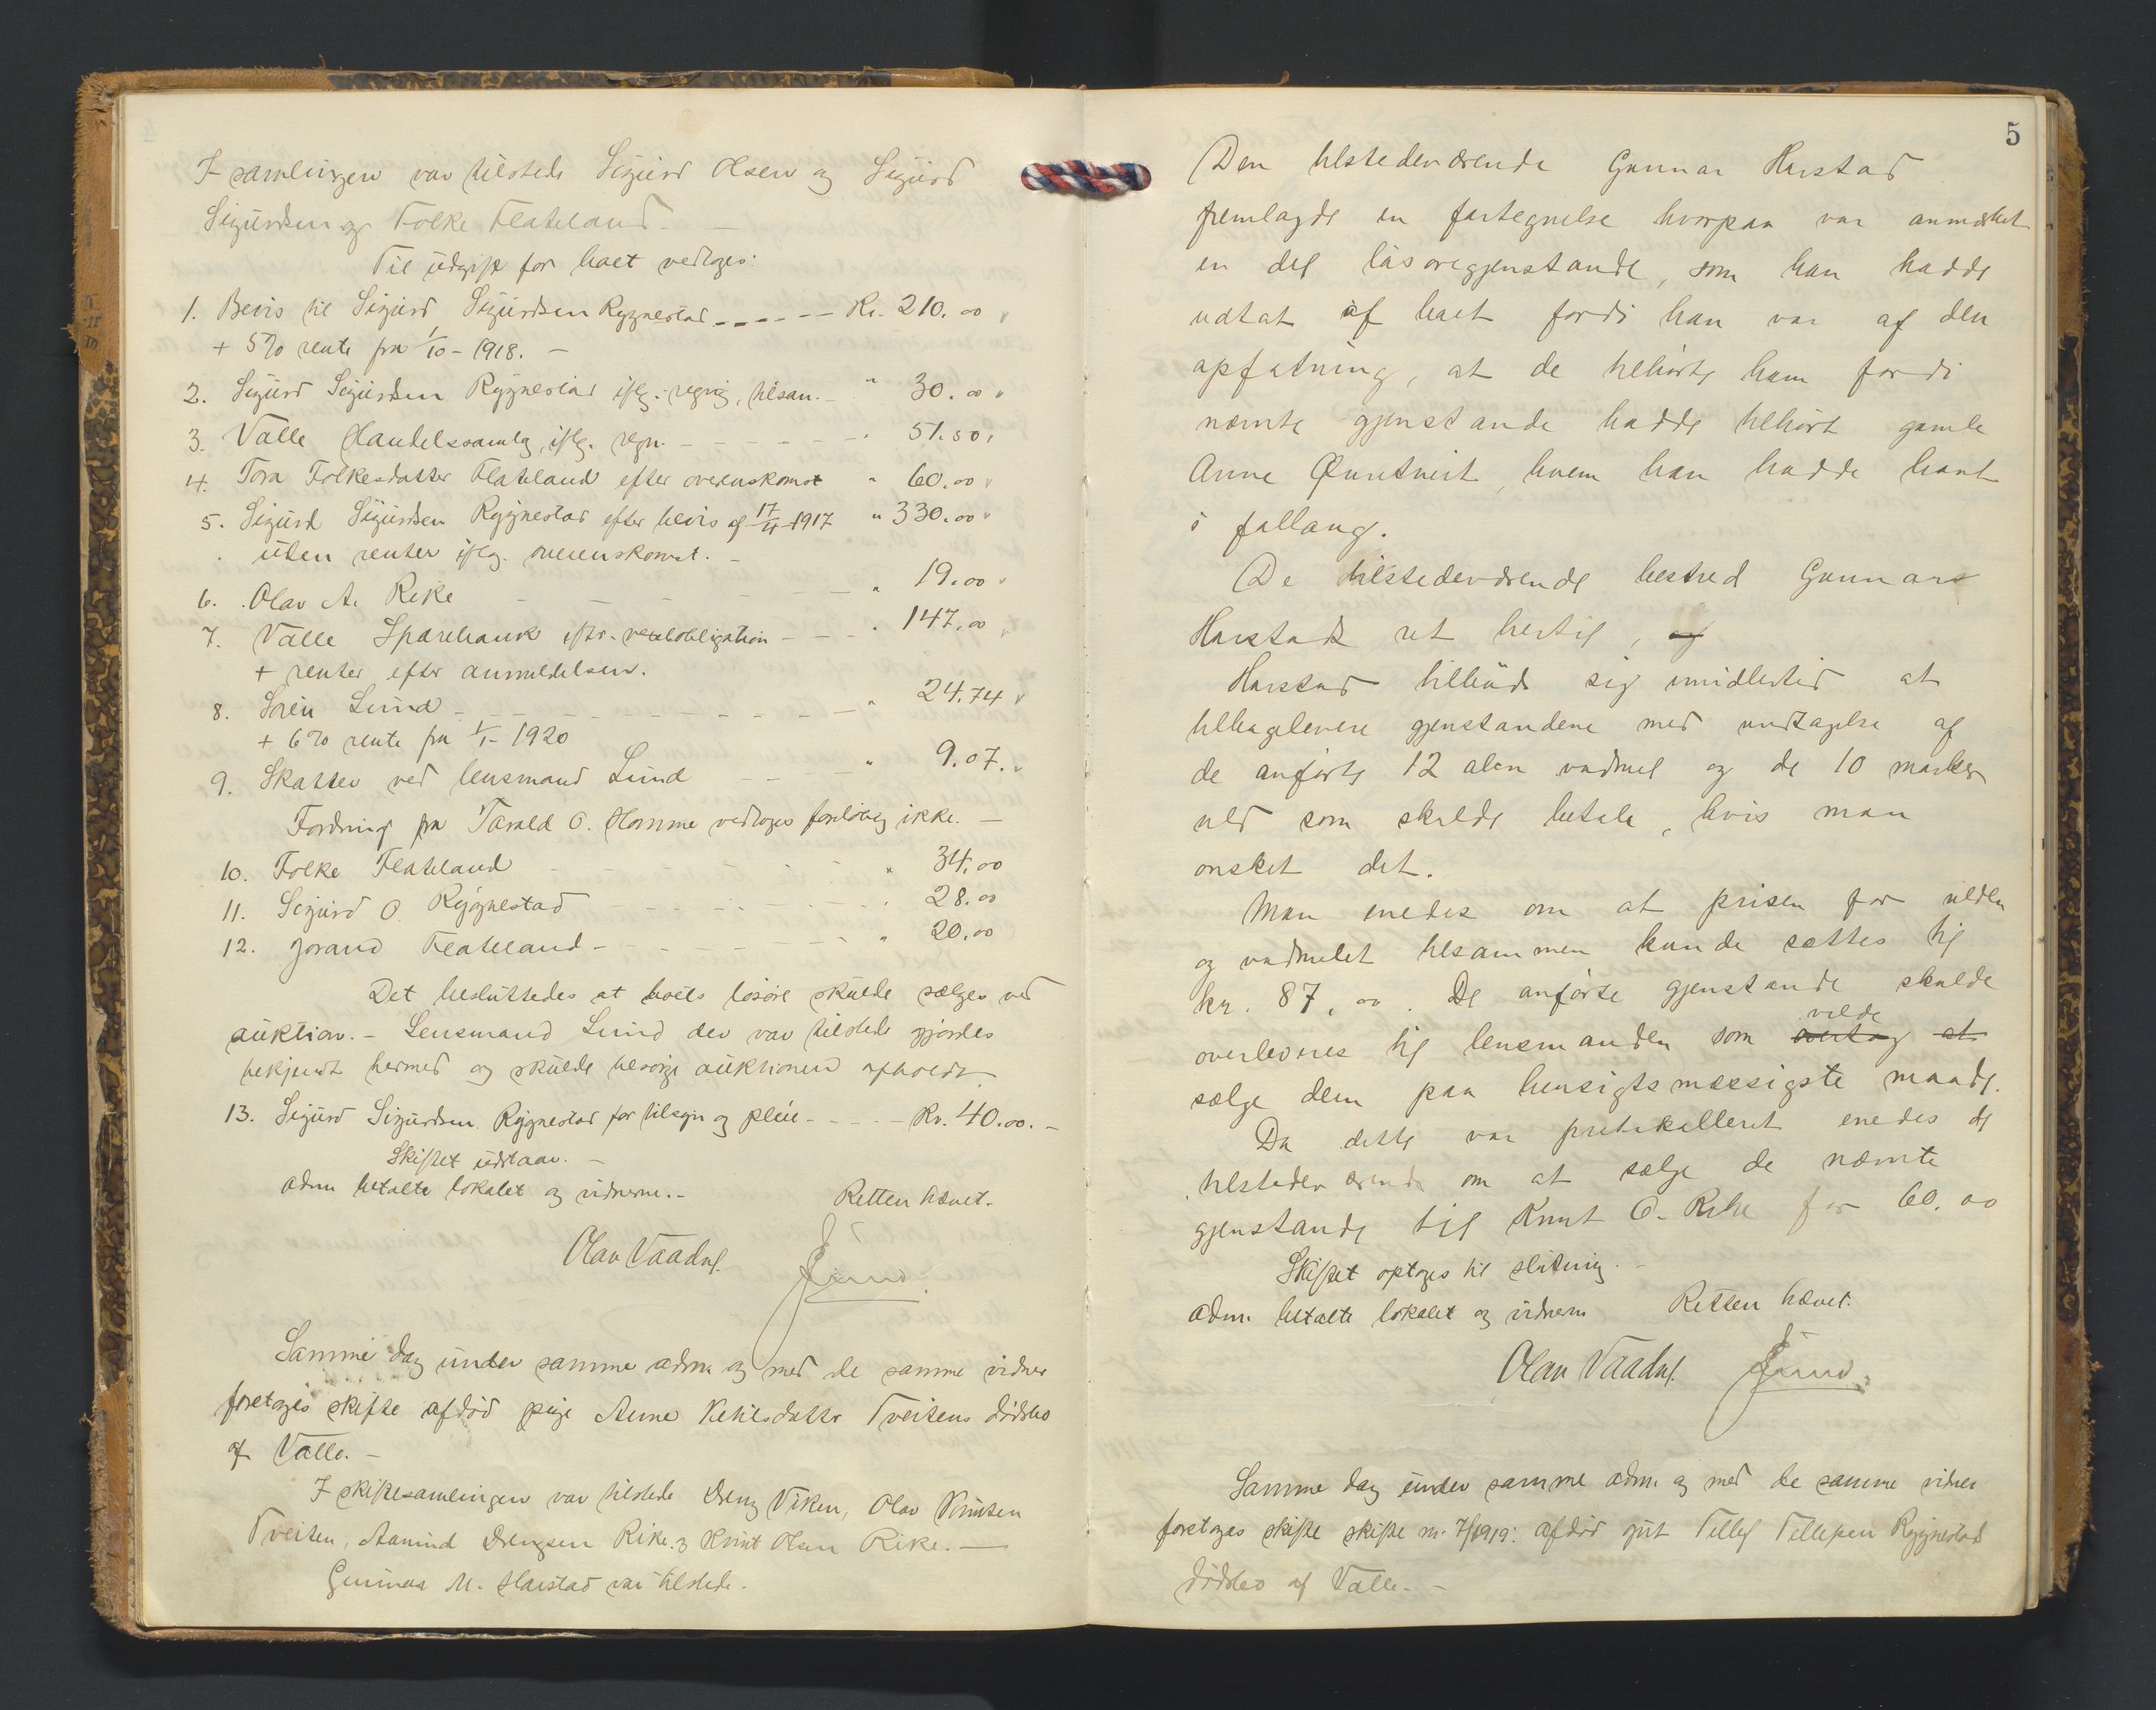 I samlingen var tilstede Sigurd Olsen og Sigurd
Sigurdsen og Folke Flateland. -
Til udgift for boet vedtoges:
1. Bevis til Sigurd Sigurdsen Rygnestad - - - - - Kr. 210.00
+ 5% rente fra 1/10 - 1918. -
2. Sigurd Sigurdsen Rygnestad iflg. regng, tilsam. - " 30.00
3. Valle Handelssamlag, iflg. regn. - - - - - " 51.50
4. Tora Folkesdatter Flateland efter overenskomst " 60.00
5. Sigurd Sigurdsen Rygnestad efter bevis af 17/4-1917 " 330.00
uten renter iflg. overenskomst. -
6. Olav A. Rike - - - - - " 19.00
7. Valle Sparebank iflg. vexelobligation - - - " 147.00
+ renter efter anmeldelsen.
8. Søren Lund - - - - - - - " 24.74
+ 6% rente fra 1/1 - 1920
9. Skatter ved lensmand Lund - - - " 9.07.
Fordring fra Tarald O. Homme vedtoges foreløbig ikke. -
10. Folke Flateland - - - - - " 34.00
11. Sigurd O. Rygnestad - - - - - " 28.00
12. Jorand Flateland - - - - - " 20.00
Det besluttedes at boets løsøre skulde sælges ved
auktion. - Lensmand Lund der var tilstede gjordes
bekjendt hermed og skulde besørge auktionen afholdt.
13. Sigurd Sigurdsen Rygnestad for tilsyn og pleie - - - - Kr. 40.00. -
Skiftet udstaar. -
Adm betalte lokalet og vidnerne. -
Retten hævet.
Olav Vaadal.
Lund
Samme dag under samme adm og med de samme vidner
foretoges skifte afdød pige Anne Ketilsdatter Tveitens dødsbo
af Valle. -
I skiftesamlingen var tilstede Dreng Viken, Olav Knutsen
Tveiten, Aamund Drengsen Rike og Knut Olsen Rike. -
Gunnar M. Harstad var tilstede.
5
Den tilstedeværende Gunnar Harstad
fremlagde en fortegnelse hvorpaa var anmerket
en del løsøregjenstande, som han hadde
udtat af boet fordi han var af den
opfatning, at de tilhørte ham fordi
nævnte gjenstande hadde tilhørt gamle
Anne, hvem han hadde havt
i follaug.
De tilstedeværende bestred Gunnar
Harstads ret hertil, og
Harstad tilbud sig imidlertid at
tilbagelevere gjenstandene med undtagelse af
de anførte 12 alen vadmel og de 10 marker
uld som skulde betale, hvis man
ønsket det.
Man enedes om at prisen for ulden
og vadmelet tilsammen kunde sættes til
kr. 87,00. De anførte gjenstande skulde
overleveres til lensmanden som overtog at vilde
sælge dem paa hensigtsmæssigste maade.
Da dette var protokolleret enedes de
tilstedeværende om at sælge de nævnte
gjenstande til Knut O. Rike for 60.00
Skiftet optoges til slutning. -
Adm. betalte lokalet og vidnerne Retten hævet.
Olav Vaadal. Lund
Samme dag under samme adm. og med de samme vidner
foretoges skifte skifte nr. 7/1919: afdød gut Tellef Tellefsen Rygnestad
dødsbo af Valle. -